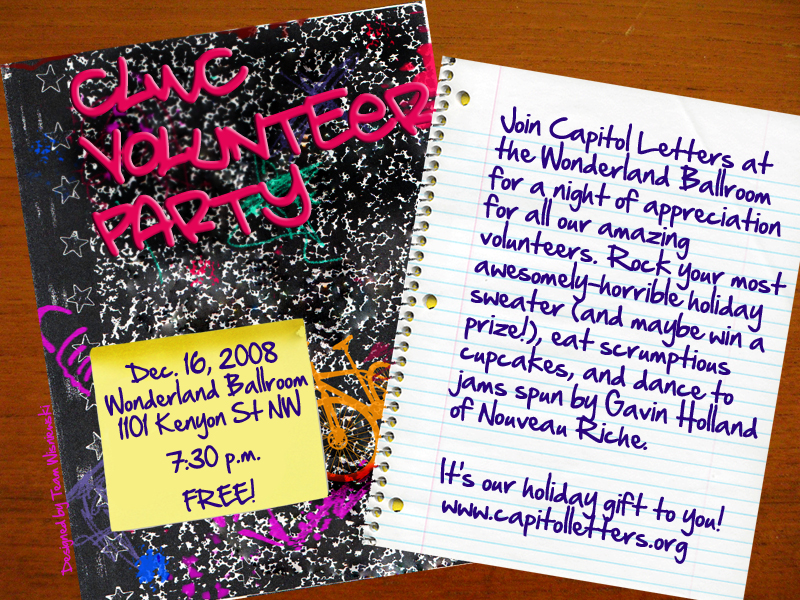 CLWC
VOLUNTEER
PARTY
Dec. 16, 2008
Wonderland Ballroom
1101 Kenyon St NW
7:30 p.m.
FREE!
Join Capitol Letters at
the Wonderland Ballroom
for a night of appreciation
for all our amazing
volunteers. Rock your most
awesomely-horrible holiday
sweater (and maybe win a
prize!), eat scrumptious
cupcakes, and dance to
jams spun by Gavin Holland
of Nouveau Riche.
It's our holiday gift to you!
www.capitolletters.org
Designed by